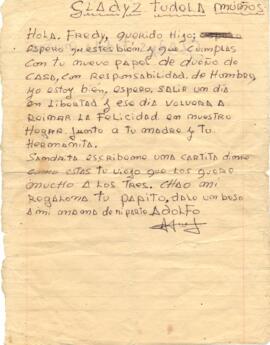 GLADYZ TUDELA MUÑOS
HOLA. FREDY, QUERIDO HIJO;
ESPERO QUE ESTES BIEN. Y QUE CUMPLAS
CON TU NUEVO PAPEL DE DUEÑO DE
CASA, CON RESPONSABILIDAD. DE HOMBRE,
YO ESTOY BIEN, ESPERO, SALIR UN DIA
EN LIBERTAD Y ESE DIA VOLVERA A
REINAR LA FELICIDAD EN NUESTRO
HOGAR JUNTO A TU MADRE Y TU
HERMANITA.
SANDRITA ESCRIBEME UNA CARTITA DIME
COMO ESTAS TU VIEJO QUE LOS QUIERE
MUCHO A LOS TRES. CHAO MI
REGALONA TU PAPITO, DALE UN BESO
A MI MAMA DE MI PARTE ADOLFO